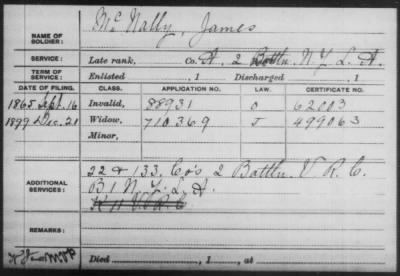 NAME OF SOLDIER: McNally, James
SERVICE: Late rank, Co. A, 2 Battn. N.Y.L.A.
TERM OF SERVICE: Enlisted , 1 Discharged , 1
DATE OF FILING. CLASS. APPLICATION NO. LAW. CERTIFICATE NO.
1865 Sept. 16 Invalid, 88931 O 62003
1899 Dec. 21 Widow, 710369 J 499063
Minor,
ADDITIONAL SERVICES: 22 & 133, Co's 2 Battln. V.R.C.
B 1 N.Y.L.A.
K 11 V.R.C
REMARKS:
Died , 1 , at